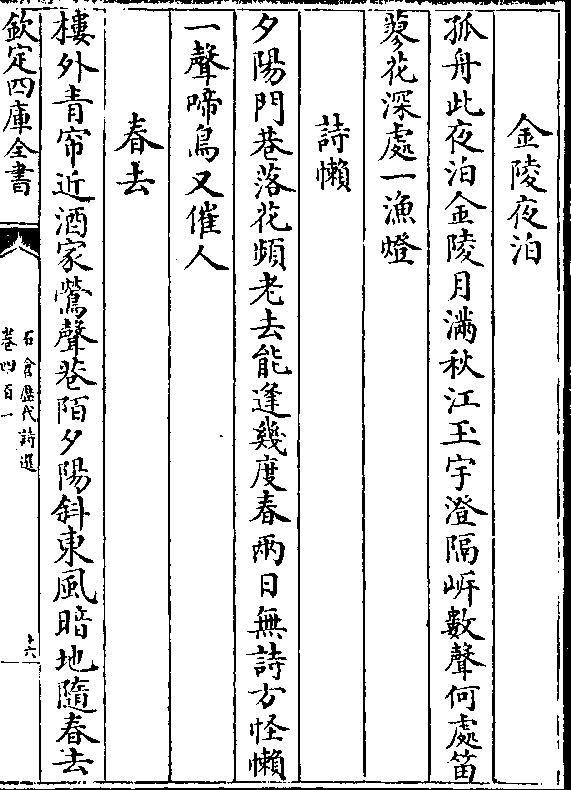 金陵夜泊
孤舟此夜泊金陵月滿秋江玉宇澄隔㟁數聲何處笛
蓼花深處一漁燈
詩懶
夕陽門巷落花頻老去能逢幾度春兩日無詩方怪懶
一聲啼鳥又催人
春去
樓外青帘近酒家鶯聲巷陌夕陽斜東風暗地隨春去
欽定四庫全書
石倉歷代詩選
卷四百一
十六